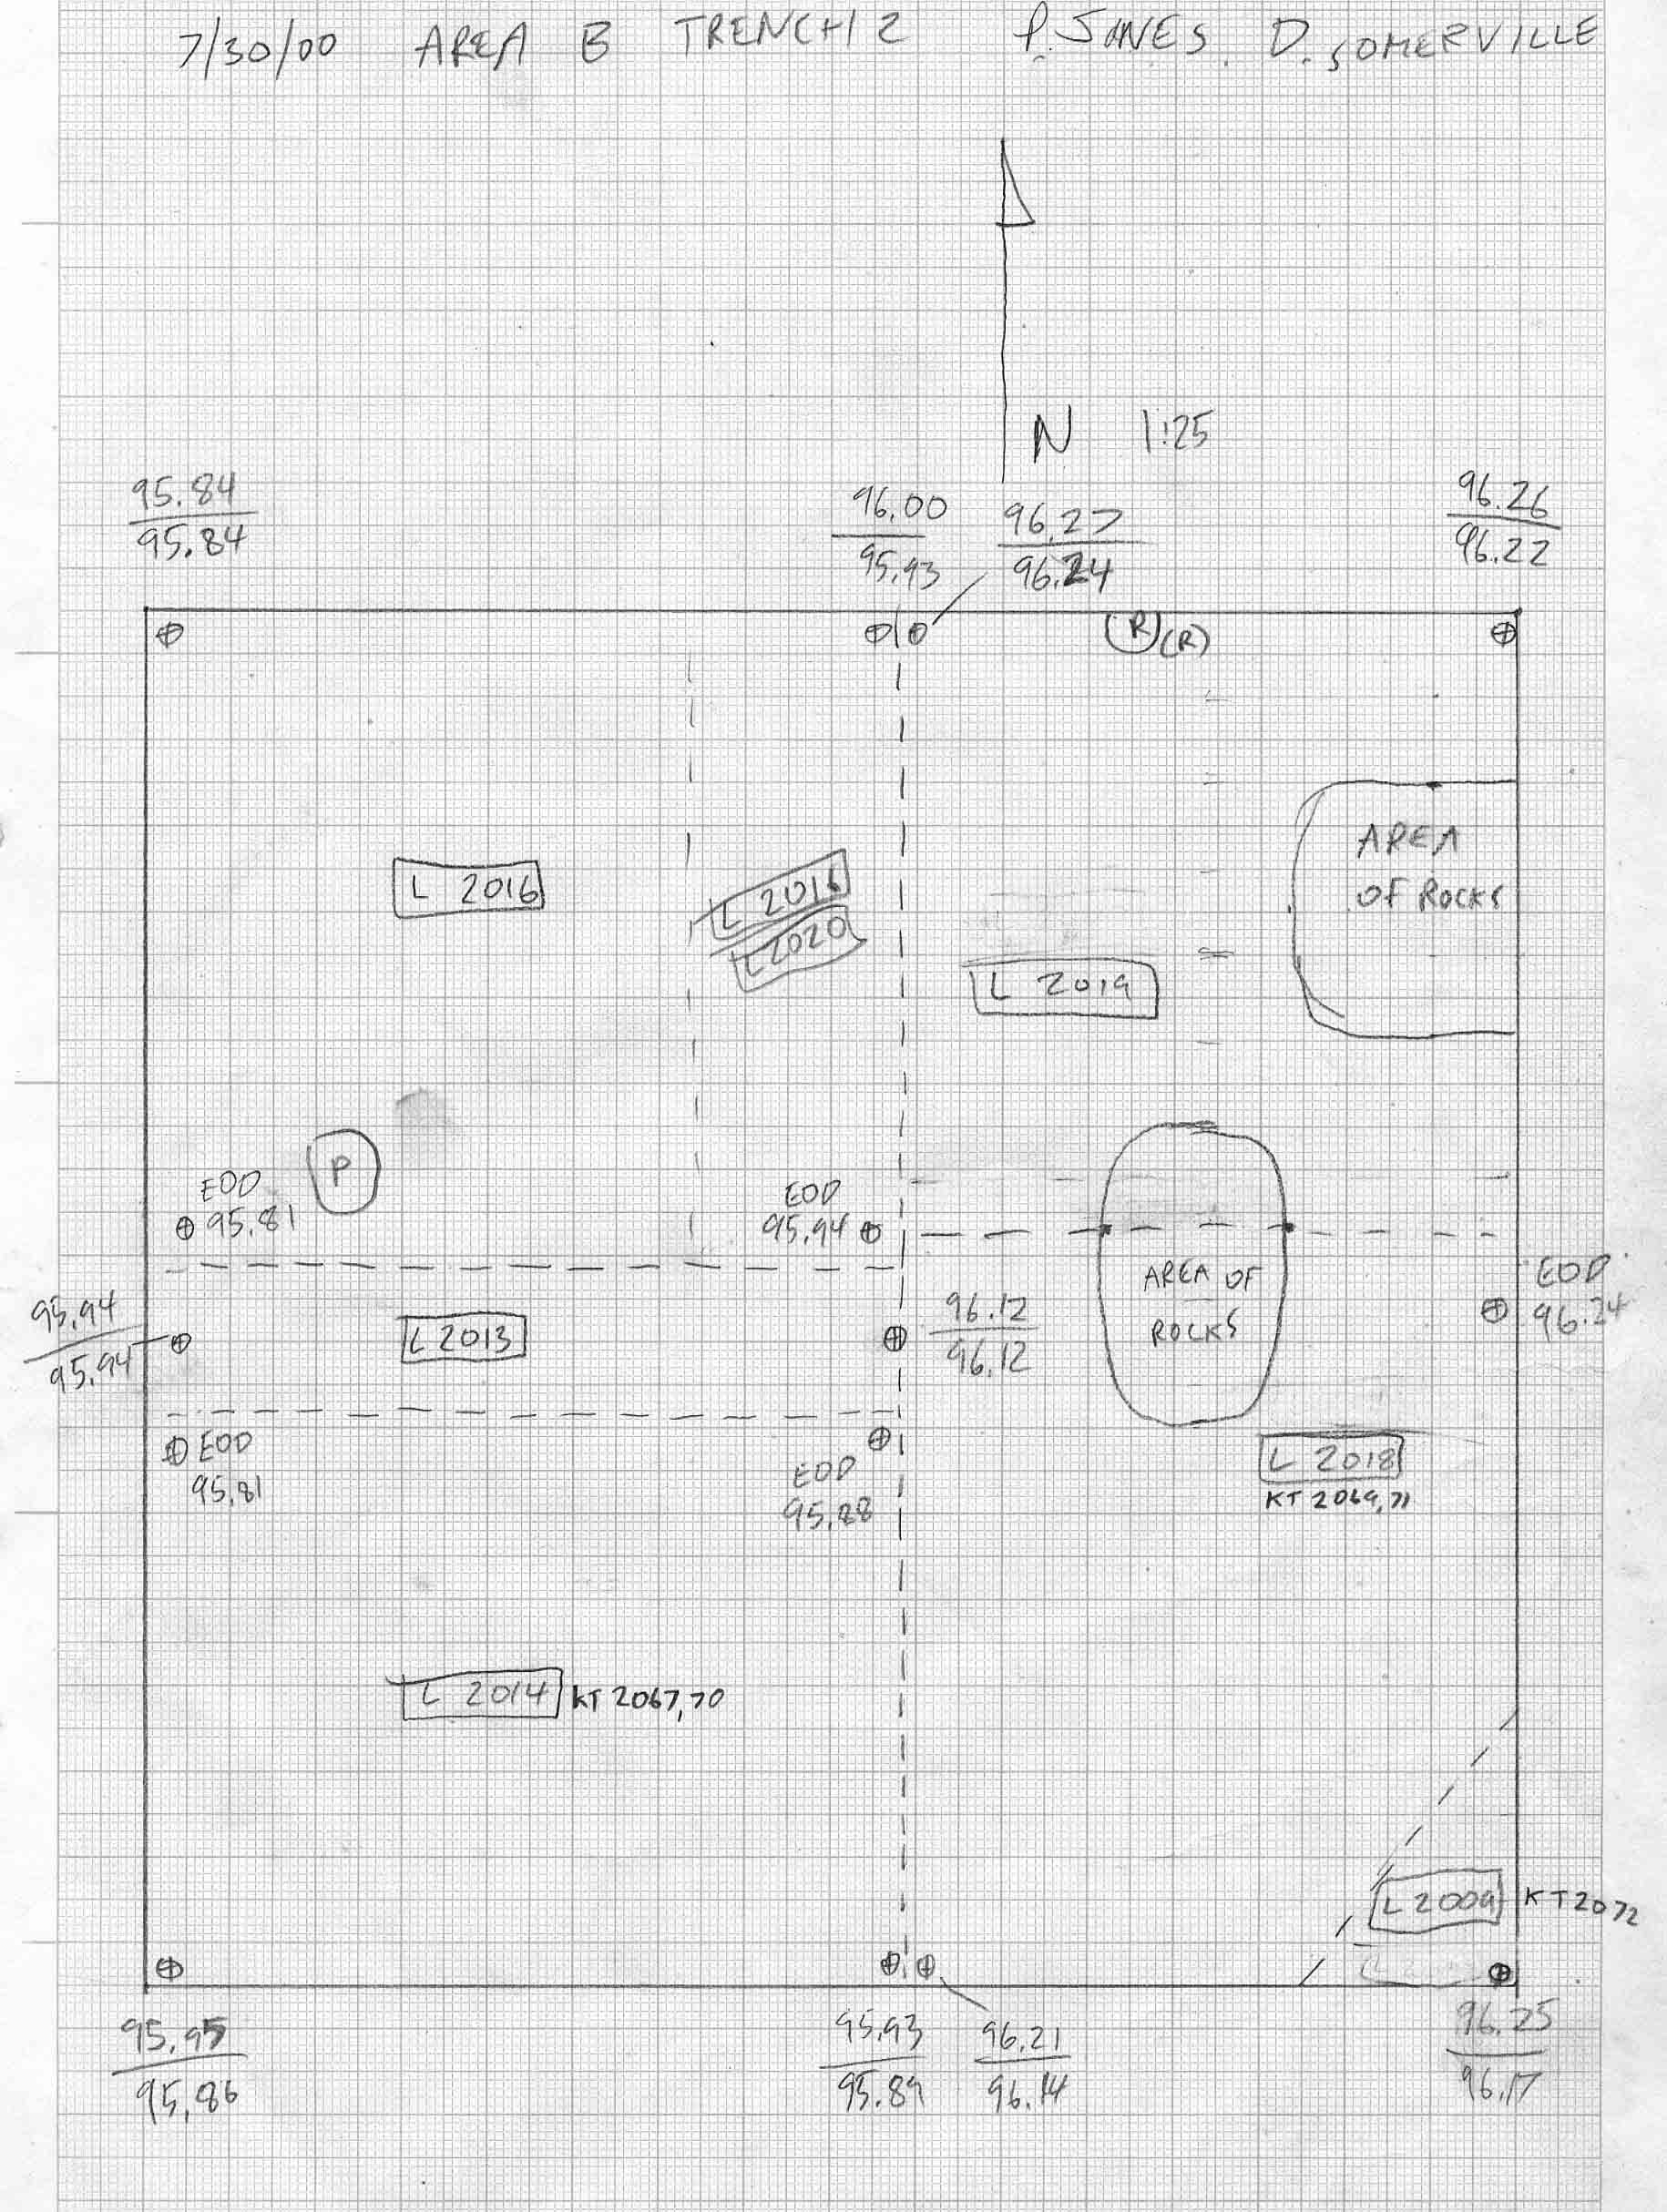 7/30/00 AREA B TRENCH 2 P. JONES. D. SOMERVILLE
N 1:25
95.84
95.84
96.00
95.93
96.27
96.24
96.26
96.22
R (R)
AREA
OF ROCKS
L 2016
L 2016
L 2020
L 2019
P
EOD
95.81
EOD
95.94
AREA OF
ROCKS
EOD
96.24
95.94
95.94
L 2013
96.12
96.12
EOD
95.81
EOD
95.88
L 2018
KT 2069,71
L 2014 KT 2067,70
L 2009 KT 2072
95.95
95.86
95.93
95.89
96.21
96.14
96.25
96.17